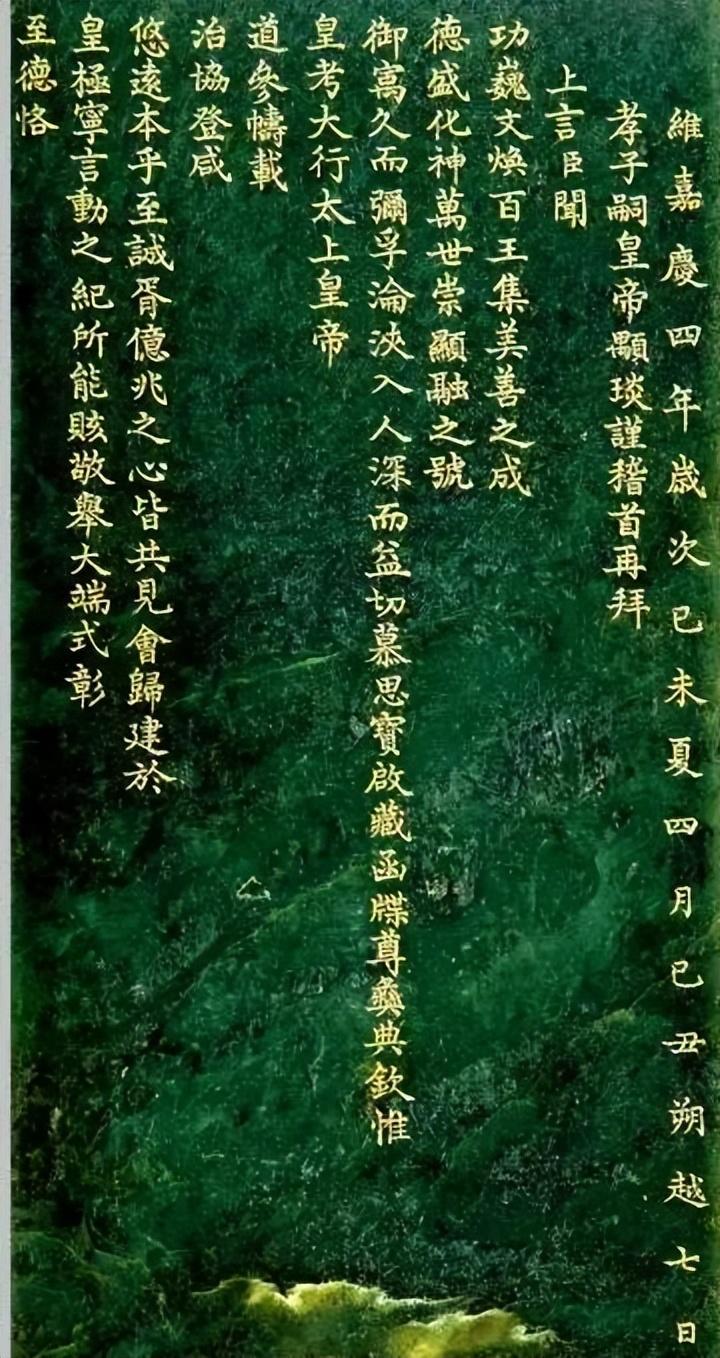 維嘉慶四年歲次己未夏四月己丑朔越七日
孝子嗣皇帝顒琰謹稽首再拜
上言臣聞
功巍文煥百王集美善之成
德盛化神萬世崇顯融之號
御寓久而彌孚淪浹入人深而益切慕思寶啟藏函牒尊彝典欽惟
皇考大行太上皇帝
道參幬載
治協登咸
悠遠本乎至誠胥億兆之心皆共見會歸建於
皇極寧言動之紀所能賅敬舉大端式彰
至德恪